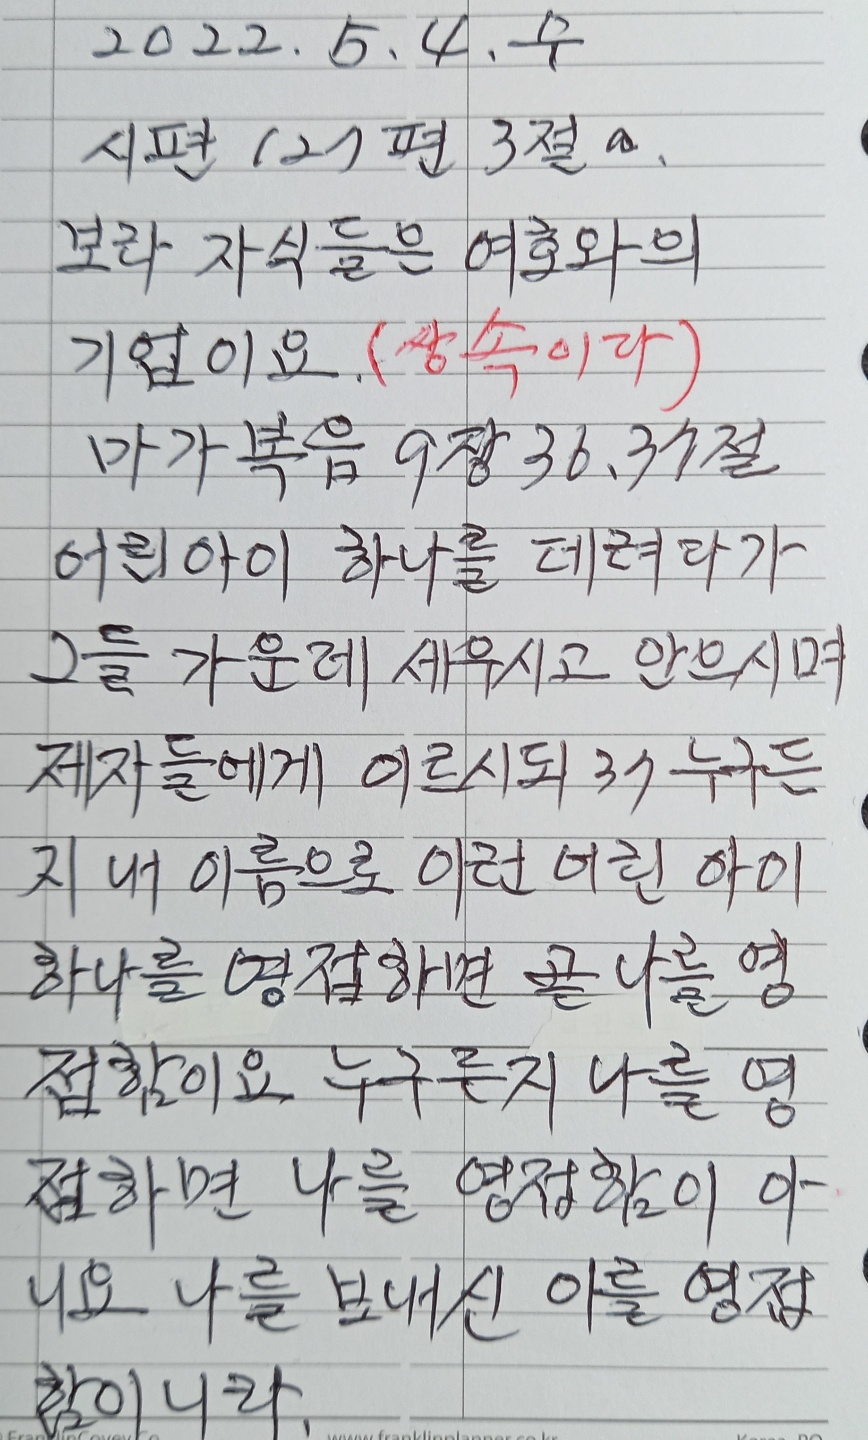 2022. 5. 4. 수
시편 127편 3절 a.
보라 자식들은 여호와의
기업이요. (상속이다)
마가복음 9장 36. 37절
어린아이 하나를 데려다가
그들 가운데 세우시고 안으시며
제자들에게 이르시되 37 누구든
지 내 이름으로 이런 어린 아이
하나를 영접하면 곧 나를 영
접함이요 누구든지 나를 영
접하면 나를 영접함이 아
니요 나를 보내신 이를 영접
함이니라.
FranklinCovey Co www.franklinplanner.co.kr Korea. PO